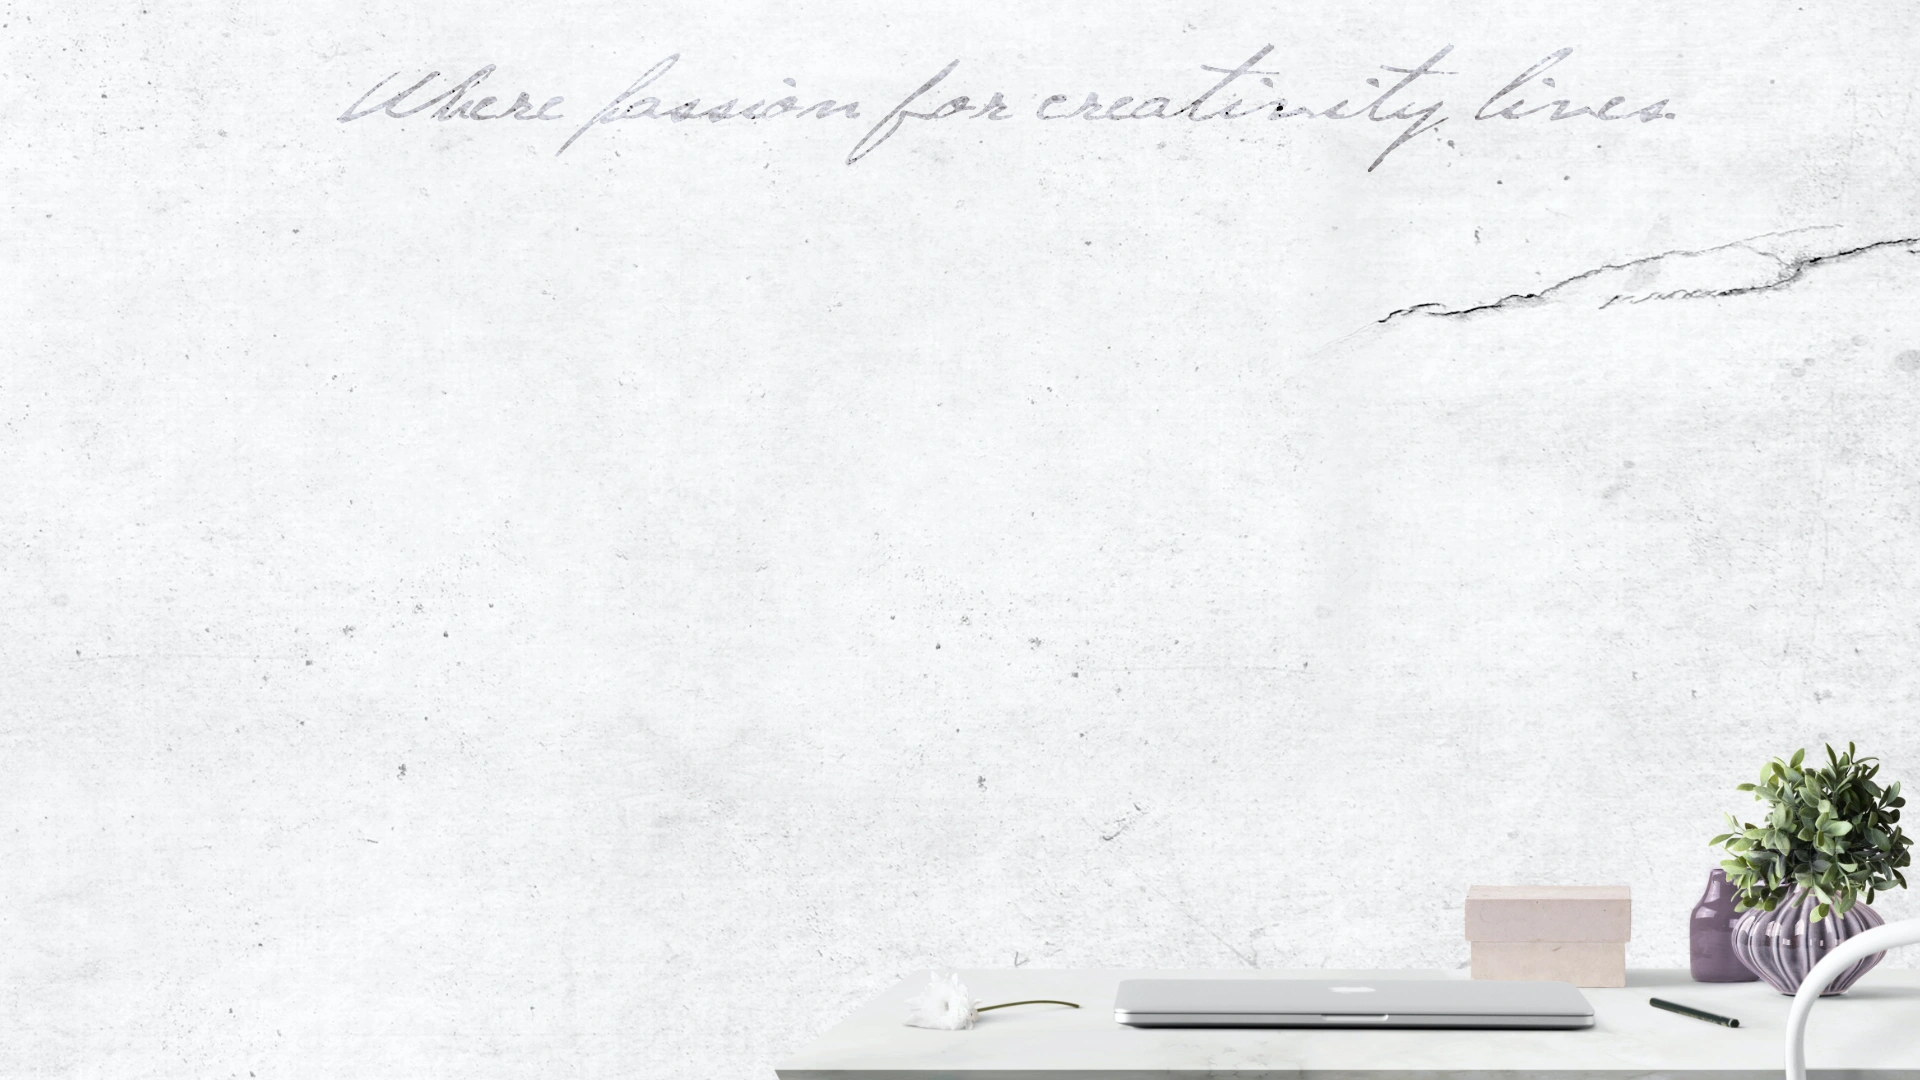 Where passion for creativity lives.